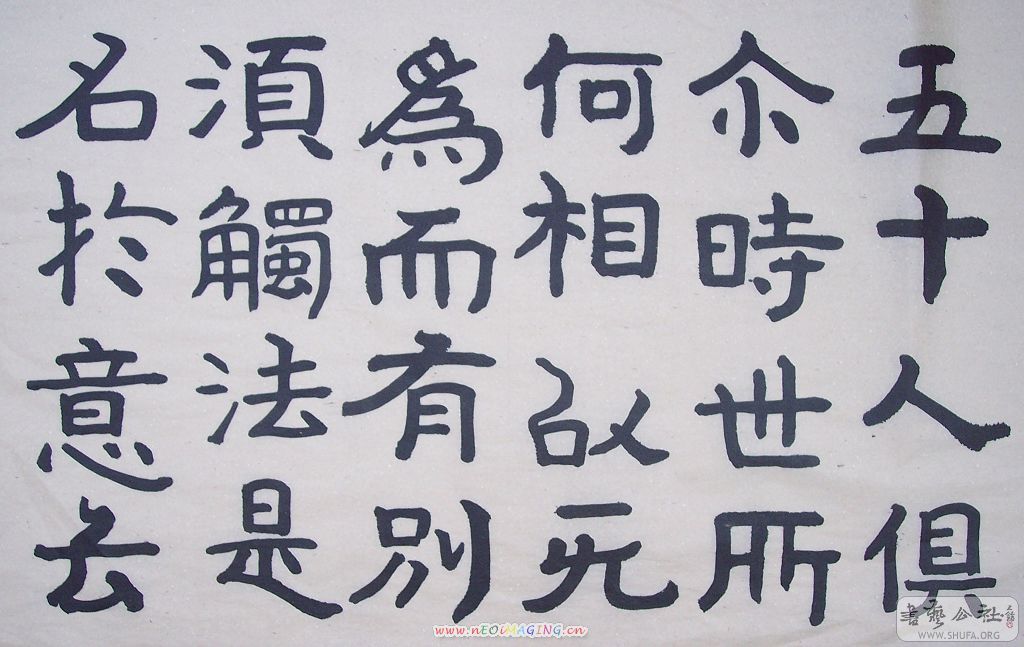 五十人俱
尒時世所
何相故无
為而有別
須觸法是
名於意去
書藝公社
WWW.SHUFA.ORG
www.nEOiMAGiNG.cn